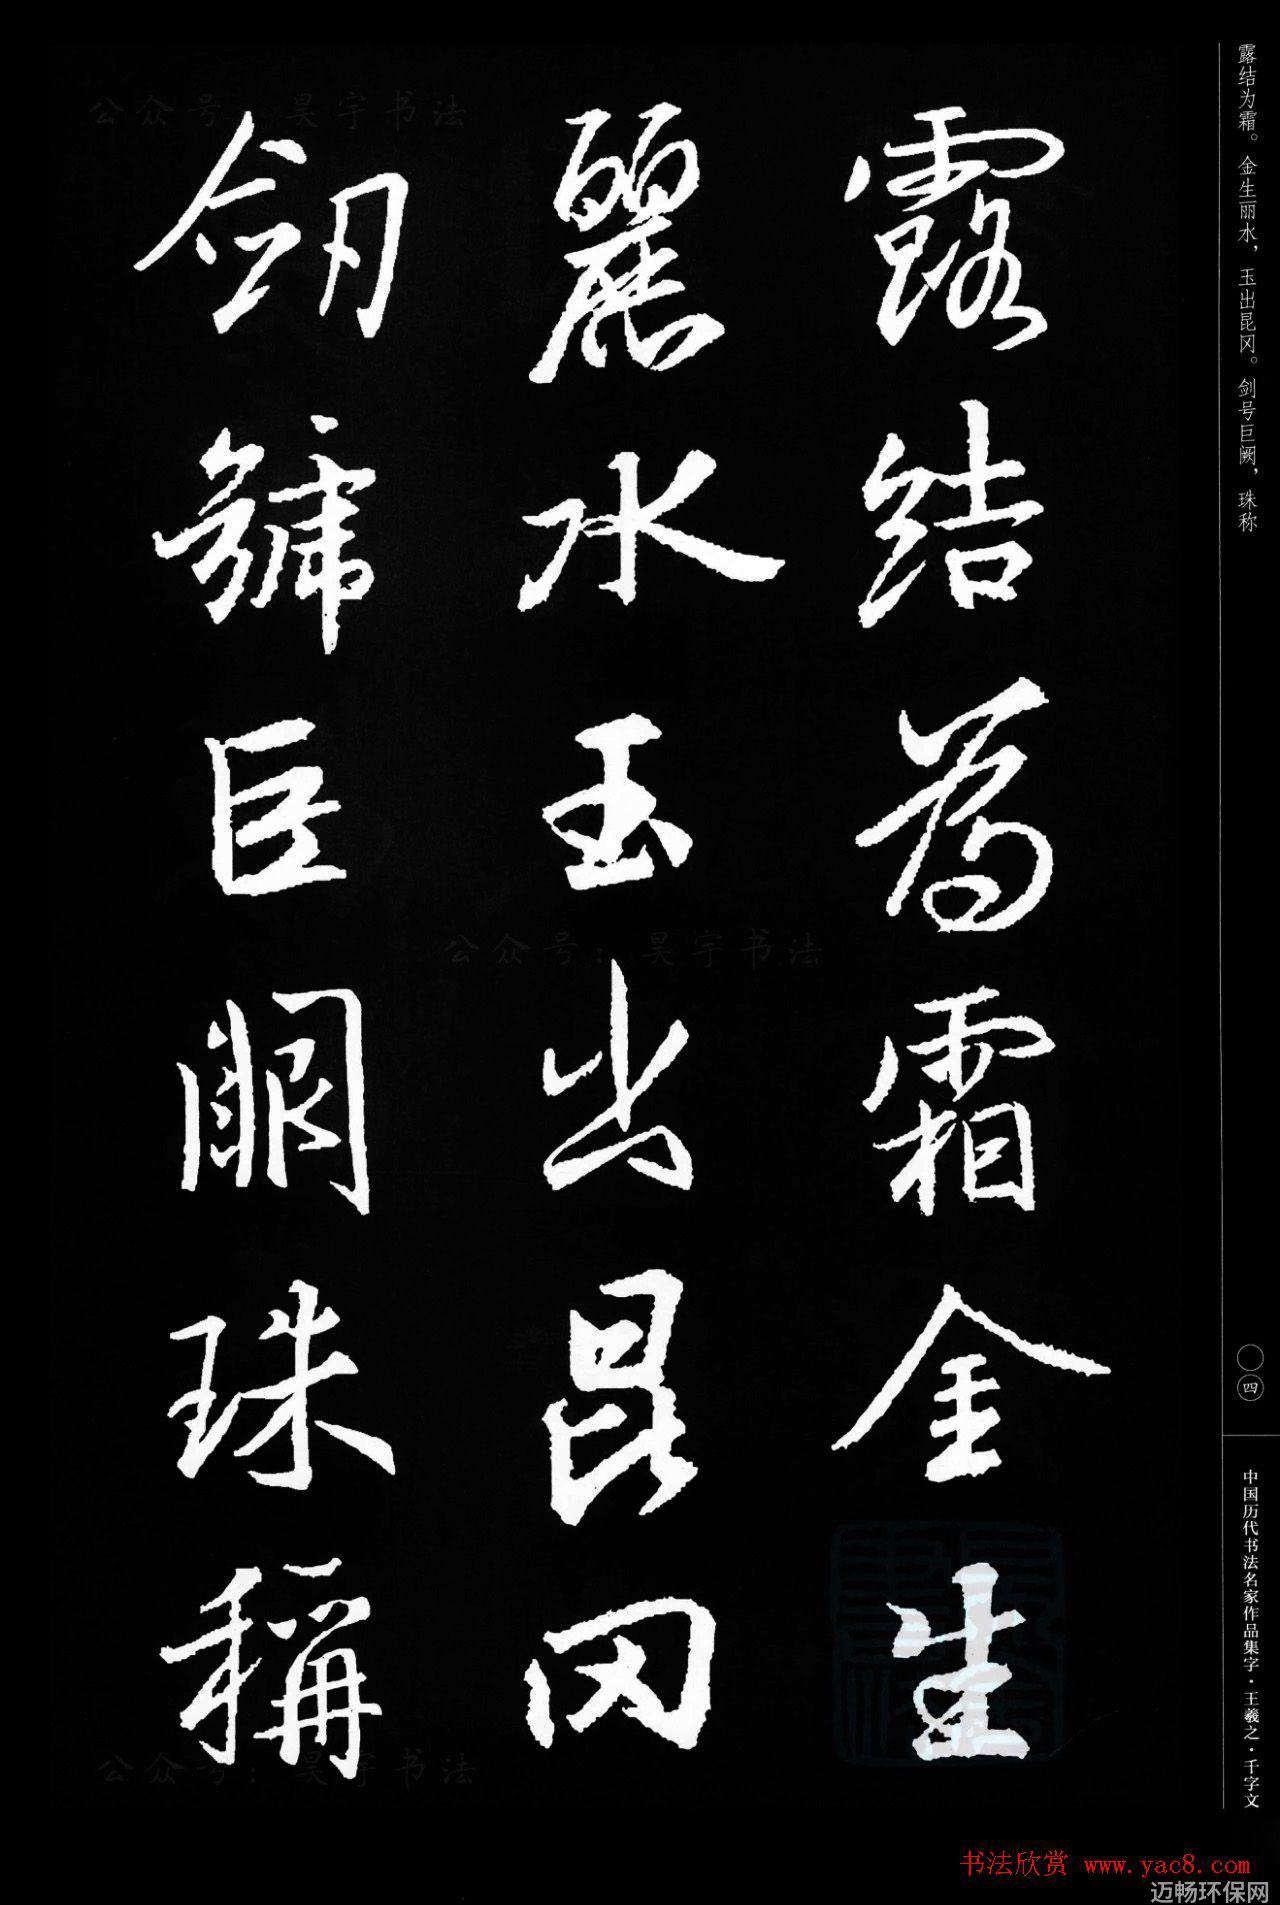 露结为霜。金生丽水，玉出昆冈。剑号巨阙，珠称
露结为霜金生
麗水玉出昆冈
劒號巨闕珠稱
四
中国历代书法名家作品集字·王羲之·千字文
公众号：昊宇书法
公众号：昊宇书法
公众号：昊宇书法
书法欣赏 www.yac8.com
迈畅环保网